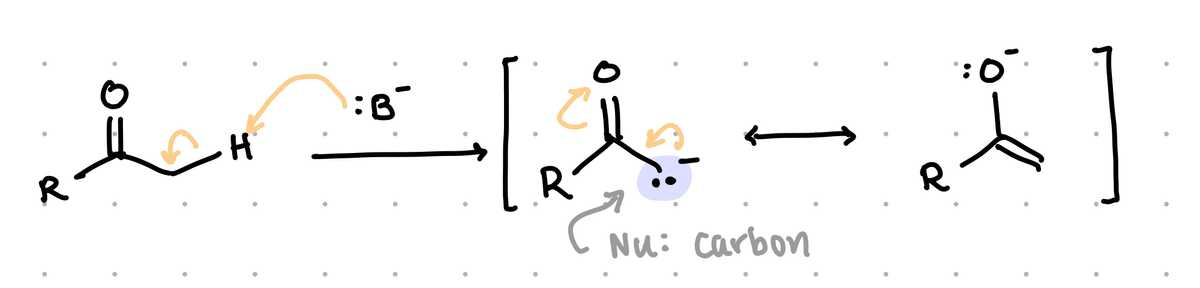 O
R
H
:B⁻
O
R
:
⁻
Nu: carbon
:O⁻
R